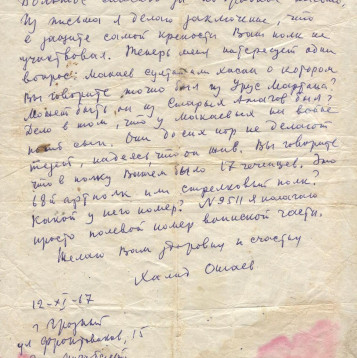 Из письма я делаю заключение, что
в защите самой крепости Ваш полк не
участвовал. Теперь меня интересует один
вопрос: Макаев Султан Хасан о котором
Вы говорите, точно был из Урус Мартана?
Может быть, он из Старых Атагов был?
Дело в том, что у Макаевых на войне
погиб сын. Они до сих пор не делают
тезет, надеясь что он жив. Вы говорите
что в полку Вашем было 17 чеченцев. Это
68й артполк или стрелковый полк?
Какой у него номер? №9511 я полагаю
просто полевой номер воинской части.
Желаю Вам здоровья и счастья
Халид Ошаев
12-XI-67
г Грозный
ул Фронтовиков, 15